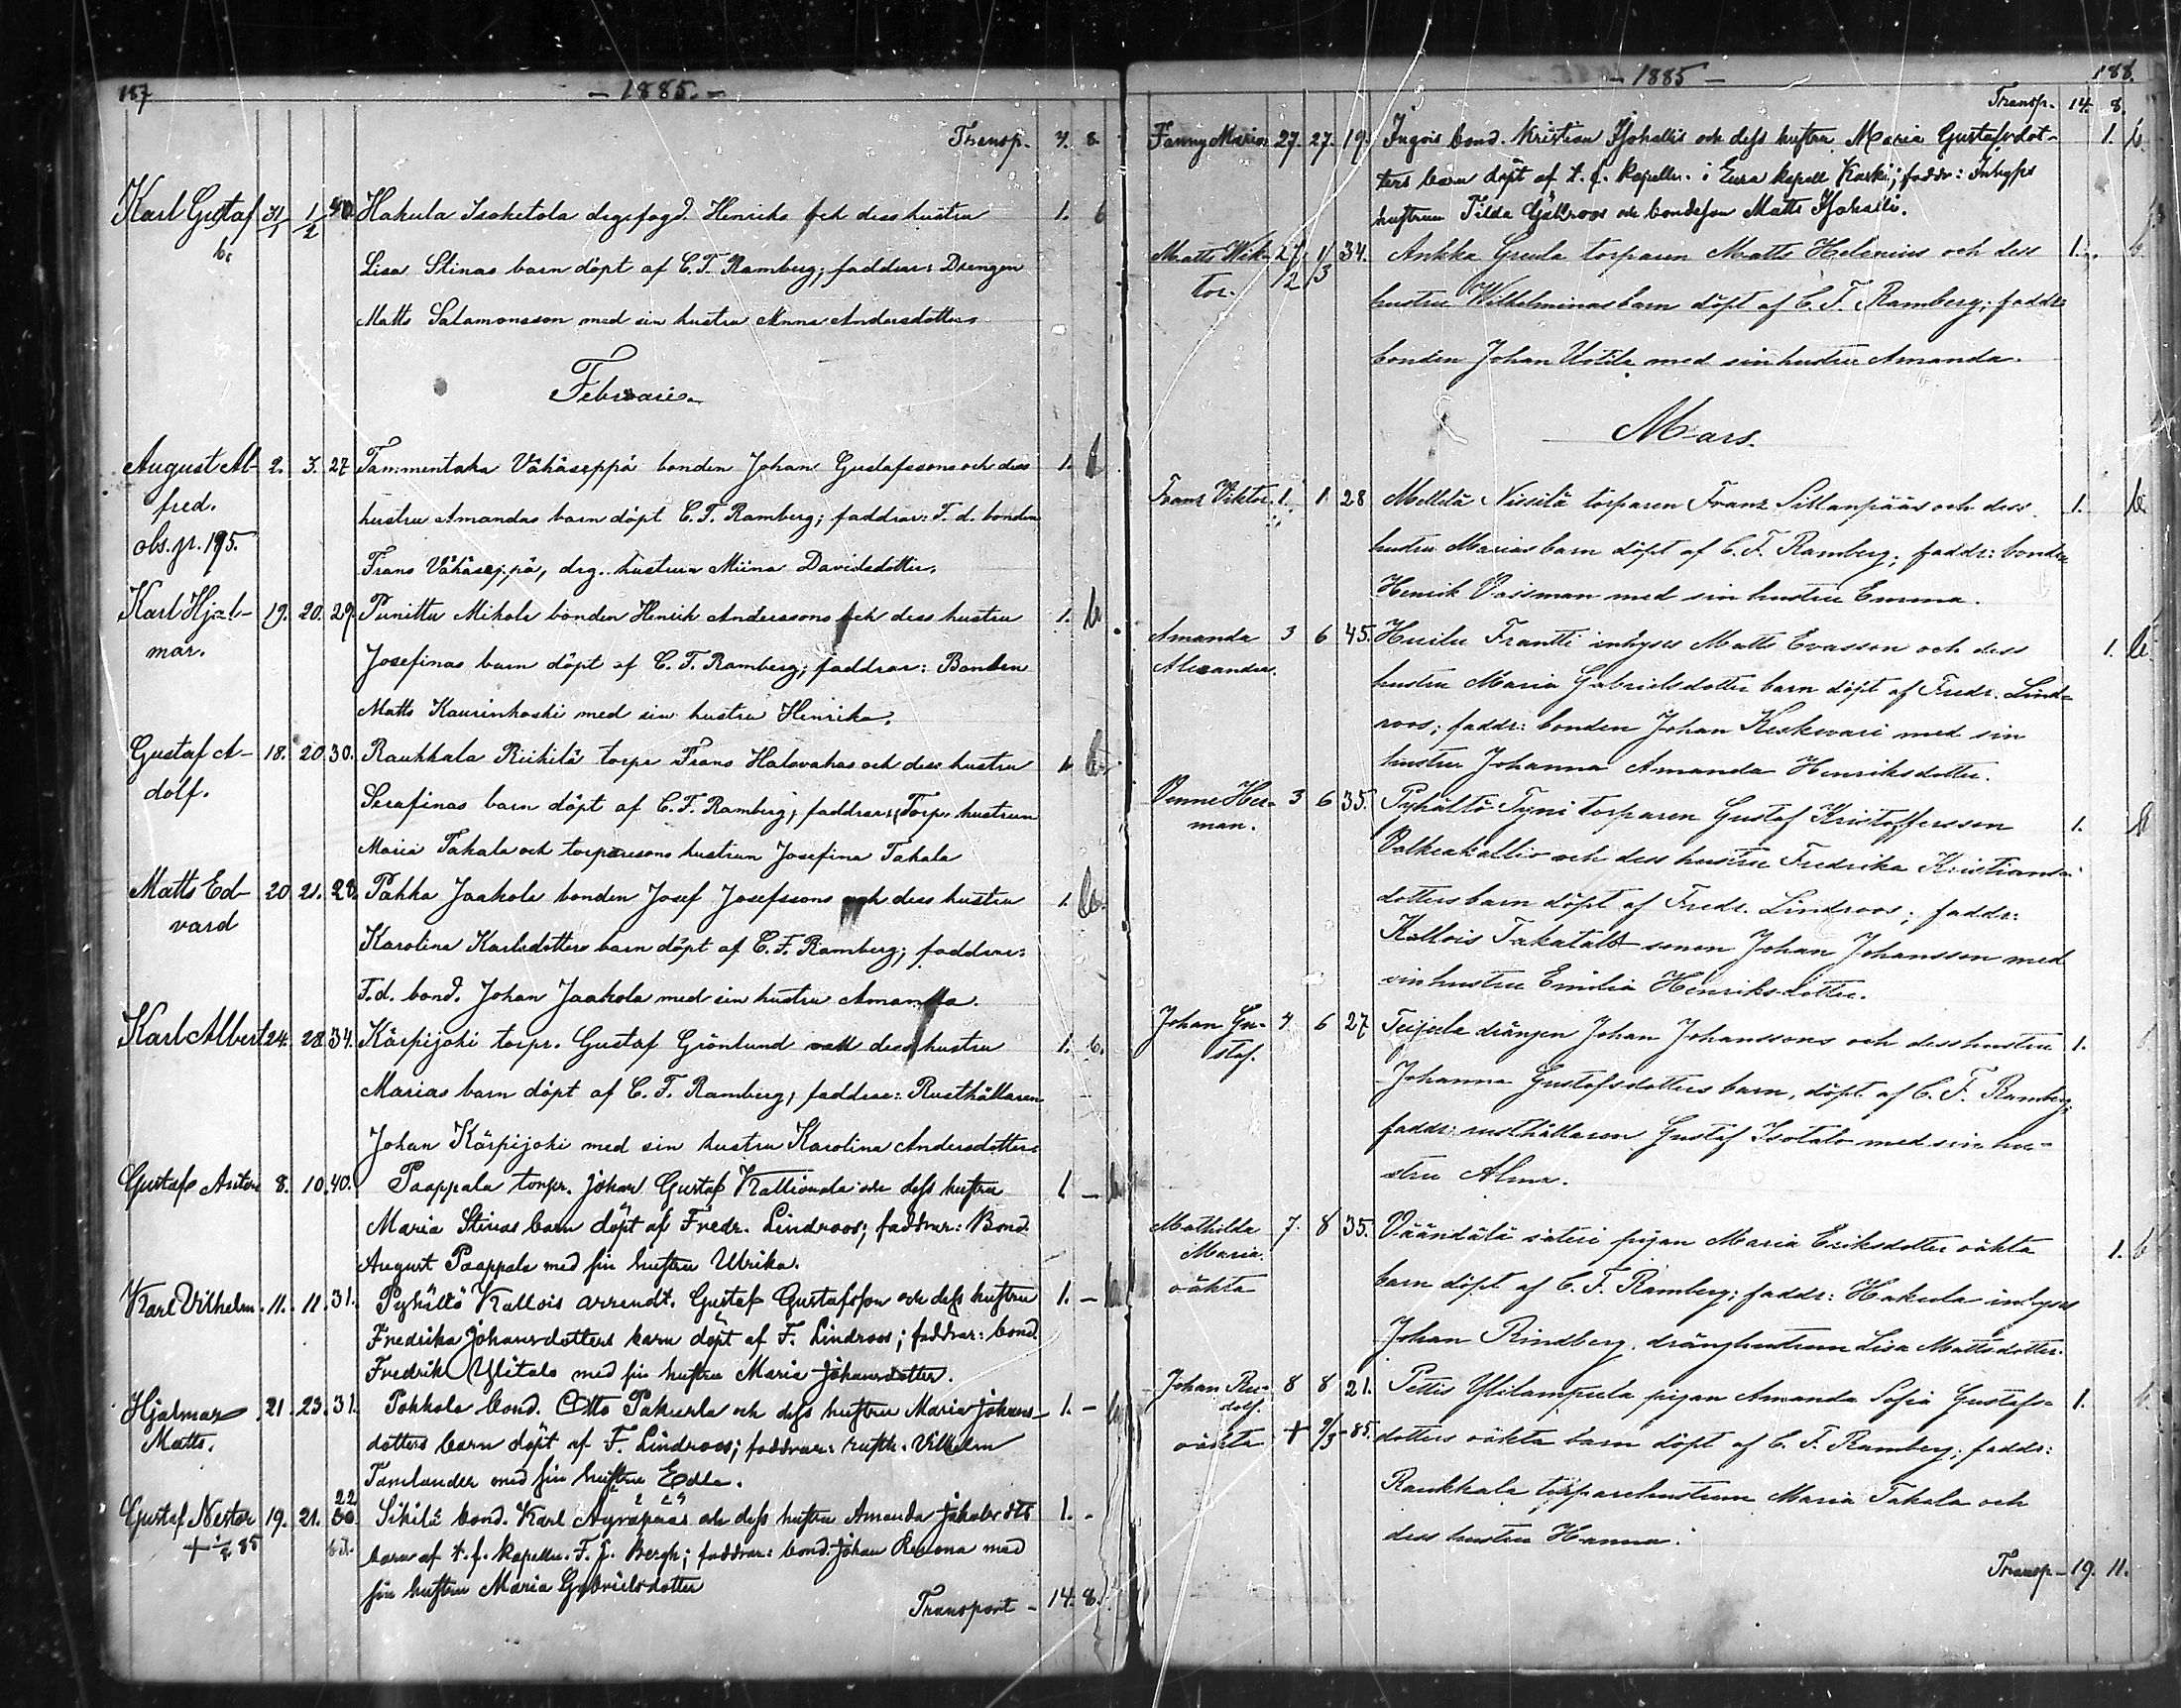 187
- 1885. -
Transp. 4. 8
Karl Gustaf 31/1 1/2 40 Hakula Isoketola drg. fogd. Henriks och dess hustru 1. b
b.
Lisa Stinas barn döpt af C. F. Ramberg; faddrar: Drengen
Matts Salamonsson med sin hustru Anna Andersdotter
Februari.
August Al- 2. 3. 27 Tammentaka Vähäseppä bonden Johan Gustafssons och dess 1. b
fred. hustru Amandas barn döpt C. F. Ramberg; faddrar: F. d. bonden
obs. pr. 195.
Frans Vähäseppä, drg. hustrun Miina Davidsdotter.
Karl Hjal- 19. 20. 29. Punittu Mikola bonden Henrik Anderssons och dess hustru 1. b.
mar.
Josefinas barn döpt af C. F. Ramberg; faddrar: Bonden
Matts Kaurinkoski med sin hustru Henrika.
Gustaf A- 18. 20 30. Raukkala Riikilä torpr Frans Halovahas och dess hustru 1. b.
dolf.
Serafinas barn döpt af C. F. Ramberg; faddrar: Torp. hustrun
Maria Takala och torparesons hustrun Josefina Takala
Matts Ed- 20 21. 28. Pahka Jaakola bonden Josef Josefssons och dess hustru 1. b.
vard
Karolina Karlsdotters barn döpt af C. F. Ramberg; faddrar:
F. d. bond. Johan Jaakola med sin hustru Amanda.
Karl Albert 24. 28. 34. Kärpijoki torpr. Gustaf Grönlund och dess hustru 1. b.
Marias barn döpt af C. F. Ramberg; faddrar: Rusthållaren
Johan Kärpijoki med sin hustru Karolina Andersdotter
Gustaf Anton 8. 10. 40. Paappala torpr. Johan Gustaf Kallionala och dess hustru 1 -
Maria Stinas barn döpt af Fredr. Lindroos; faddrar: Bond.
August Paappala med sin hustru Ulrika.
Karl Vilhelm. 11. 11. 31. Pyhältö Kallois arrendt. Gustaf Gustafsson och dess hustru 1. -
Fredrika Johansdotters barn döpt af F. Lindroos; faddrar: bond.
Fredrik Ylitalo med sin hustru Maria Johansdotter.
Hjalmar 21. 23. 31. Pohkola bond. Otto Pakurla och dess hustru Maria Johans- 1. -
Matts.
dotters barn döpt af F. Lindroos; faddrar: rusth. Vilhelm
Tamlander med sin hustru Edla.
22
Gustaf Nestor 19. 21. Sikilä bond. Karl Äyräpääs och dess hustru Amanda Jakobsdts 1. -
barn af t. f. kapelln. F. J. Bergh; faddrar: bond. Johan Revona med
sin hustru Maria Gabrielsdotter
Transport - 14. 8.
- 1885 -
188.
Transp. 14. 8.
Fanny Maria 27. 27. 19. Jugois bond. Kristian Isohallis och dess hustru Maria Gustafsdot- 1. b.
ters barn döpt af t. f. kapelln. i Eura kapell Koski; faddr: Inhyses
hustrun Tilda Gällroos och bondeson Matts Isohalli.
Matts Wik- 27/2 1/3 34. Ankka Greula torparen Matts Helenius och dess 1. b.
tor.
hustru Wilhelminas barn döpt af C. F. Ramberg; faddr:
bonden Johan Uotila med sin hustru Amanda.
Mars.
Frans Viktor 1. 1. 28 Mellilä Nissilä torparen Frans Sillanpääs och dess 1. b.
hustru Marias barn döpt af C. F. Ramberg; faddr: bonden
Henrik Vossman med sin hustru Emma.
Amanda 3 6 45. Huilu Frantti inhyses Matts Evasson och dess 1. b.
Alexandra.
hustru Maria Gabrielsdotter barn döpt af Fredr. Lind-
roos; faddr: bonden Johan Keskivari med sin
hustru Johanna Amanda Henriksdotter.
Venne Her- 3 6 35. Pyhältö Tyni torparen Gustaf Kristoffersson 1.
man.
Valkeakallio och dess hustru Fredrika Kristians-
dotters barn döpt af Fredr. Lindroos; faddr:
Kallois Takatalo sonen Johan Johansson med
sin hustru Emilia Henriksdotter.
Johan Gu- 4. 6 27 Teijula drängen Johan Johanssons och dess hustru 1.
staf.
Johanna Gustafsdotters barn, döpt af C. F. Ramberg;
faddr: rusthållaren Gustaf Isotalo med sin hu-
stru Alma.
Mathilda 7. 8 35. Väändälä säteri pigan Maria Eriksdotter oäkta 1. b
Maria.
oäkta
barn döpt af C. F. Ramberg; faddr: Hakula inhyses
Johan Rindberg, dränghustrun Lisa Mattsdotter.
Johan Ru- 8 8 21. Pettis Ylilampula pigan Amanda Sofia Gustafs- 1.
dolf.
oäkta + 9/3 - 85. dotters oäkta barn döpt af C. F. Ramberg; faddr:
Raukkala torparehustrun Maria Takala och
dess hustru Hanna.
Transp - 19. 11.